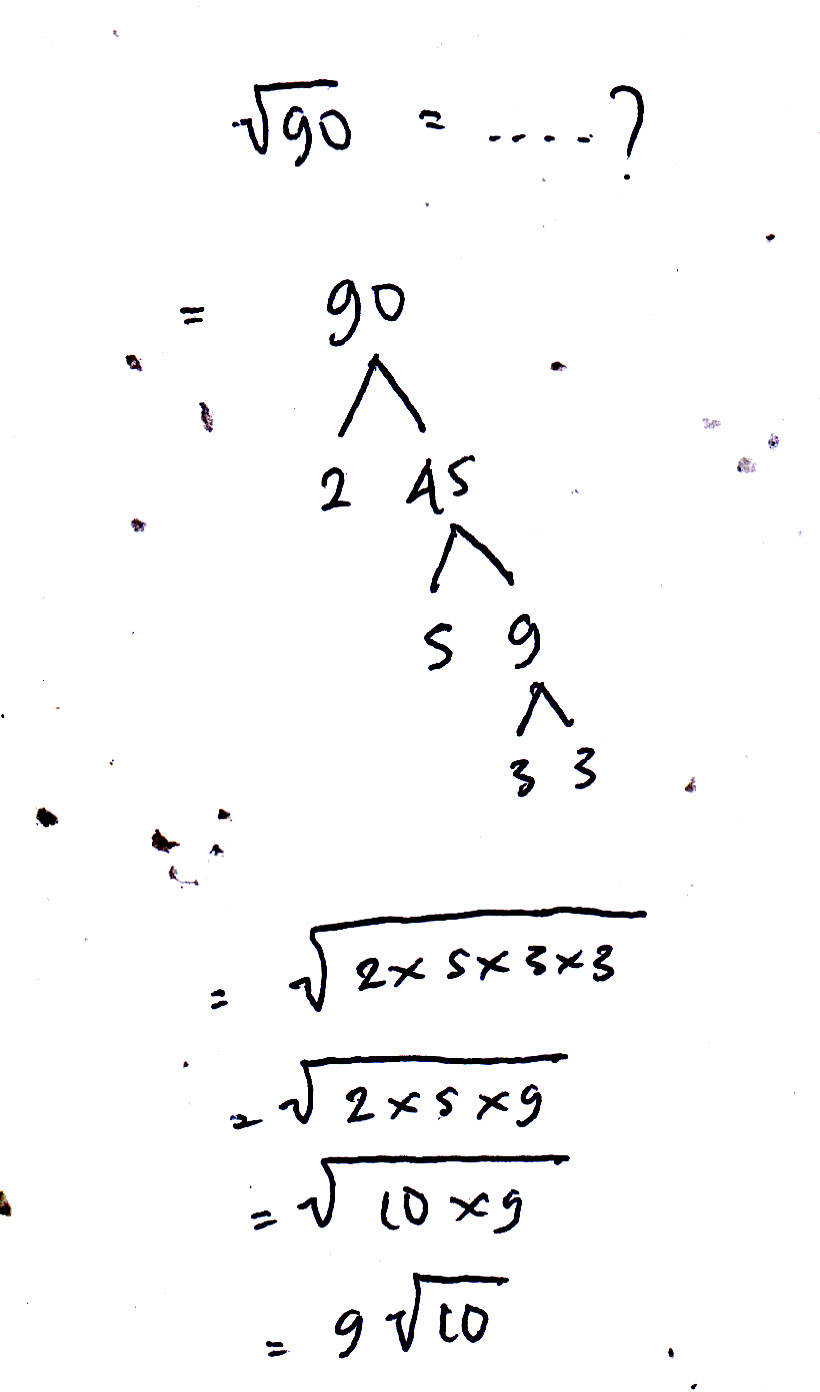 √90 = ....?
= 90
2 45
5 9
3 3
= √2×5×3×3
= √2×5×9
= √10×9
= 9√10